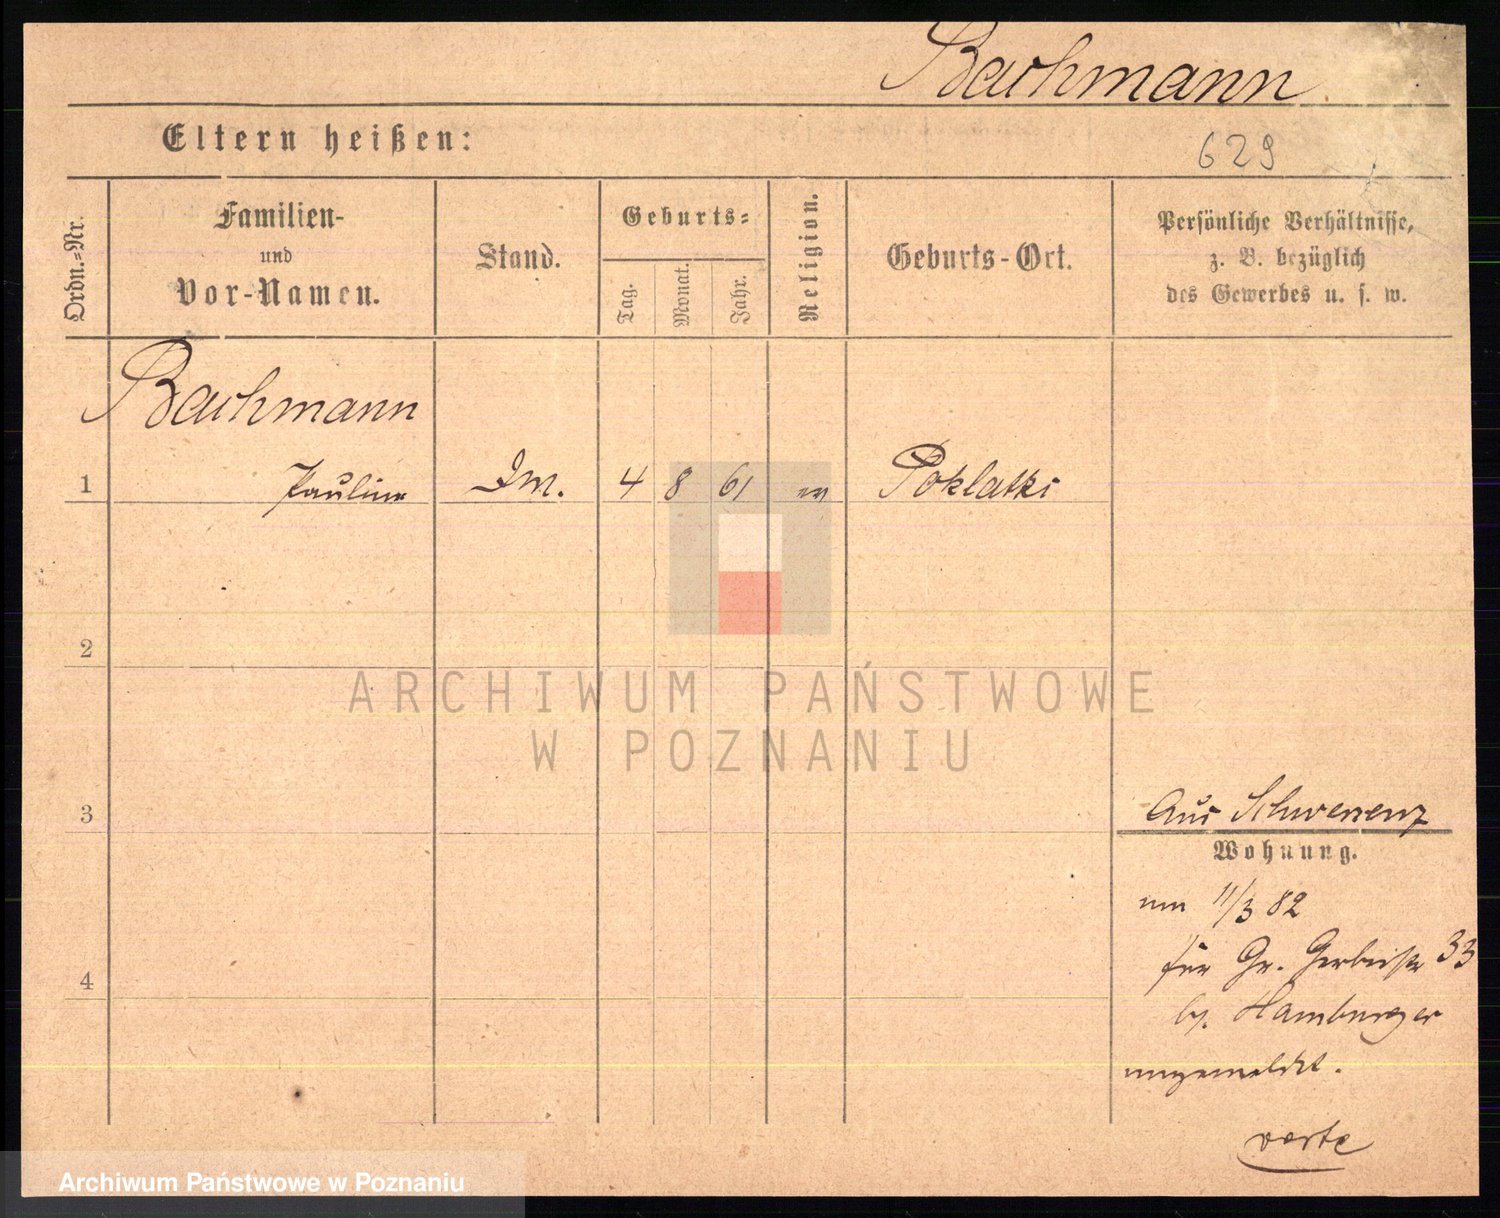 Bachmann
Eltern heißen:
629
Ordn.-Nr.
Familien-
und
Vor-Namen.
Stand.
Geburts-
Tag.
Monat.
Jahr.
Religion.
Geburts-Ort.
Persönliche Verhältnisse,
z. B. bezüglich
des Gewerbes u. s. w.
Bachmann
1 Pauline 4 8 61 ev Poklatki
2
ARCHIWUM PAŃSTWOWE
W POZNANIU
3
Aus Schwersenz
Wohnung.
11/3 82
für Gr. Gerberstr 33
by. Hamburger
angemeldet.
4
verte
Archiwum Państwowe w Poznaniu